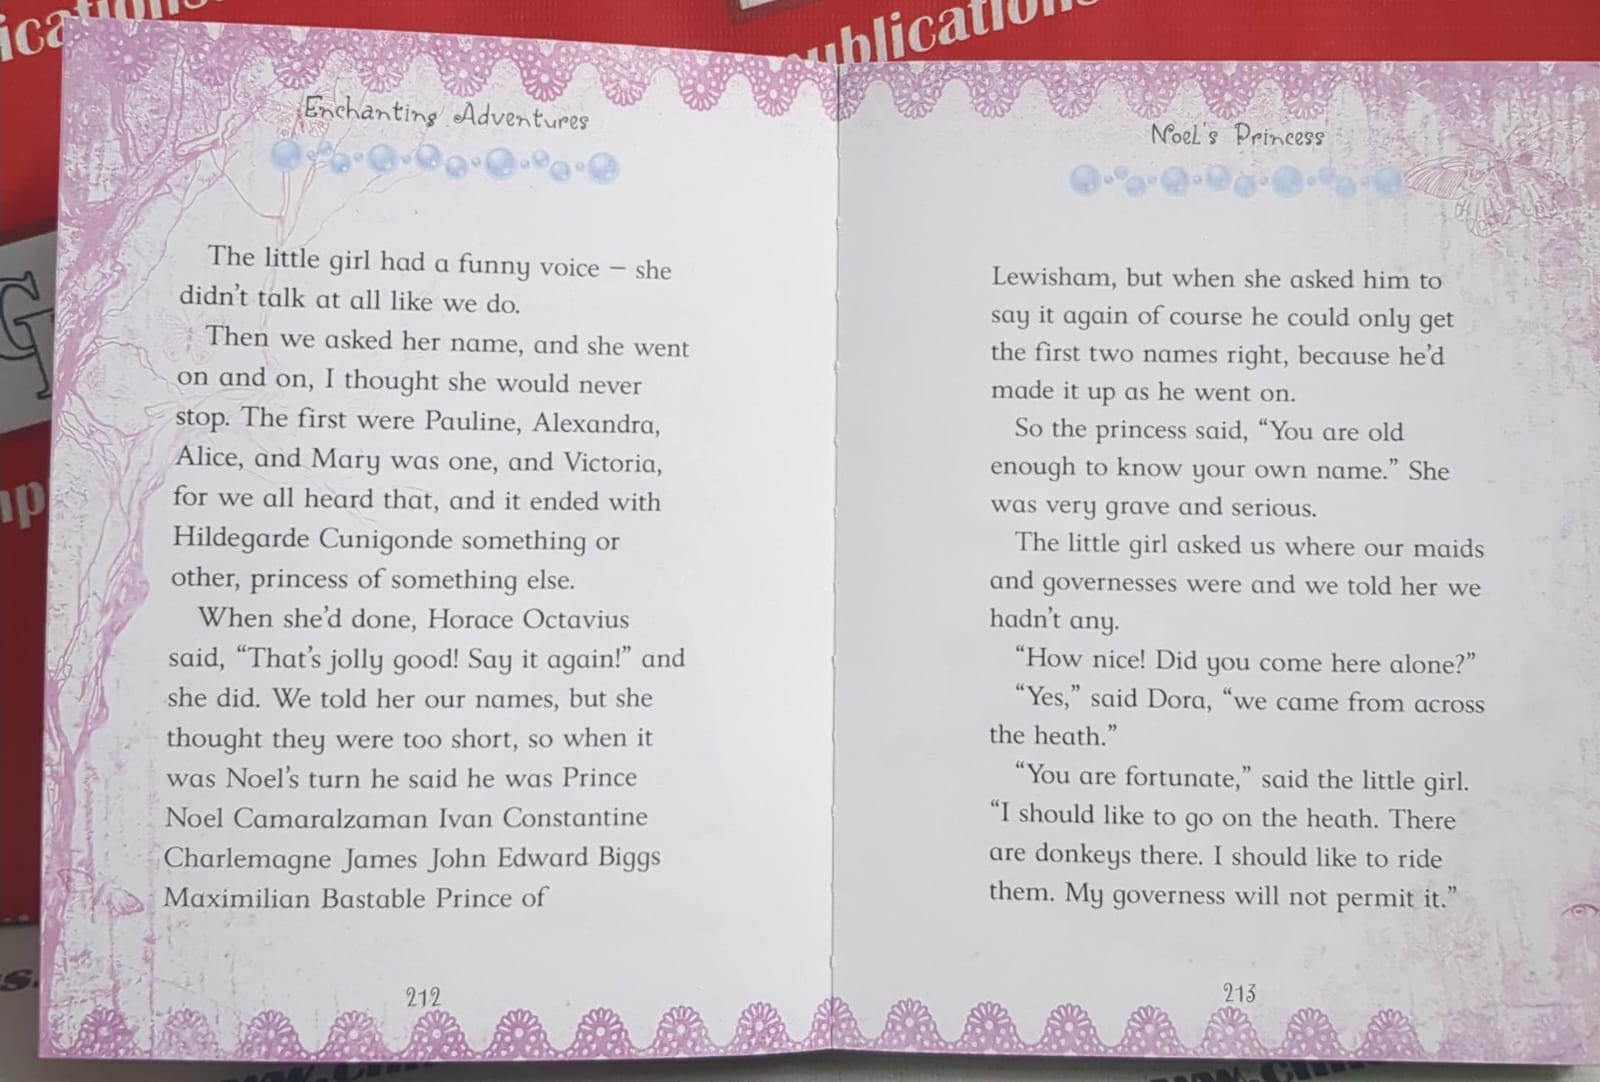 ublications
Enchanting Adventures
The little girl had a funny voice – she
didn't talk at all like we do.
Then we asked her name, and she went
on and on, I thought she would never
stop. The first were Pauline, Alexandra,
Alice, and Mary was one, and Victoria,
for we all heard that, and it ended with
Hildegarde Cunigonde something or
other, princess of something else.
When she'd done, Horace Octavius
said, “That's jolly good! Say it again!” and
she did. We told her our names, but she
thought they were too short, so when it
was Noel's turn he said he was Prince
Noel Camaralzaman Ivan Constantine
Charlemagne James John Edward Biggs
Maximilian Bastable Prince of
212
Noel's Princess
Lewisham, but when she asked him to
say it again of course he could only get
the first two names right, because he'd
made it up as he went on.
So the princess said, “You are old
enough to know your own name.” She
was very grave and serious.
The little girl asked us where our maids
and governesses were and we told her we
hadn't any.
“How nice! Did you come here alone?”
“Yes,” said Dora, “we came from across
the heath.”
“You are fortunate,” said the little girl.
“I should like to go on the heath. There
are donkeys there. I should like to ride
them. My governess will not permit it.”
213